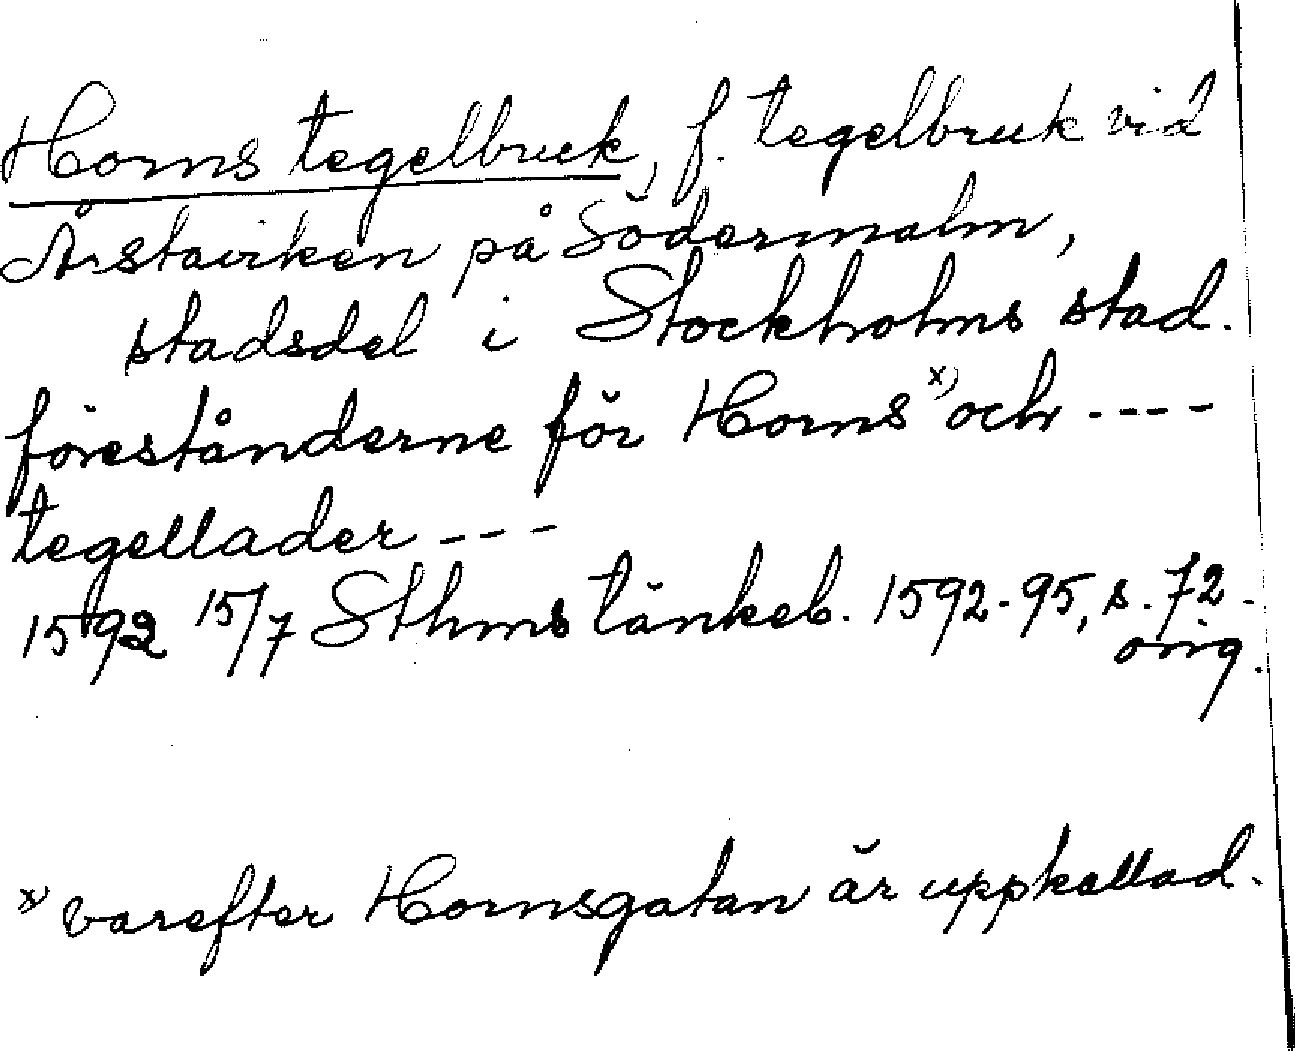 Horns tegelbruk, f. tegelbruk vid
Årstaviken på Södermalm,
stadsdel i Stockholms stad.
förestånderne för Horns x) och ----
tegellader ---
1592 15/7 Sthms tänkeb. 1592-95, s. 72.
orig.
x) varefter Hornsgatan är uppkallad.